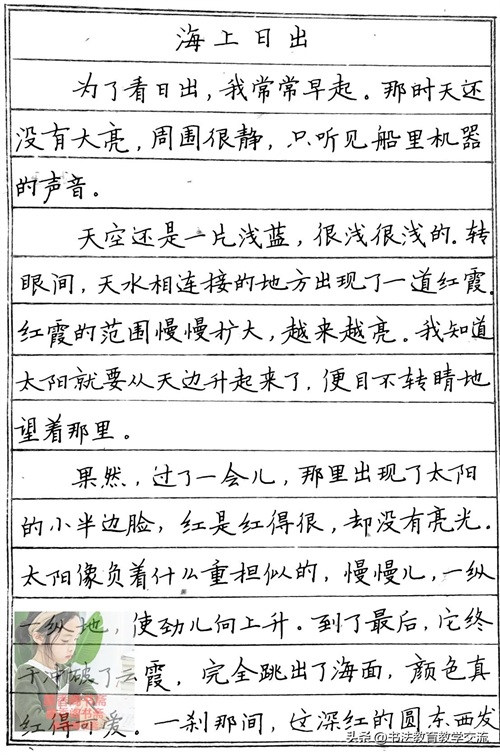 海上日出
为了看日出,我常常早起。那时天还
没有大亮,周围很静,只听见船里机器
的声音。
天空还是一片浅蓝,很浅很浅的。转
眼间,天水相连接的地方出现了一道红霞。
红霞的范围慢慢扩大,越来越亮。我知道
太阳就要从天边升起来了,便目不转睛地
望着那里。
果然,过了一会儿,那里出现了太阳
的小半边脸,红是红得很,却没有亮光。
太阳像负着什么重担似的,慢慢儿,一纵
一纵地,使劲儿向上升。到了最后,它终
于冲破了云霞,完全跳出了海面,颜色真
红得可爱。一刹那间,这深红的圆东西发
头条@书法教育教学交流